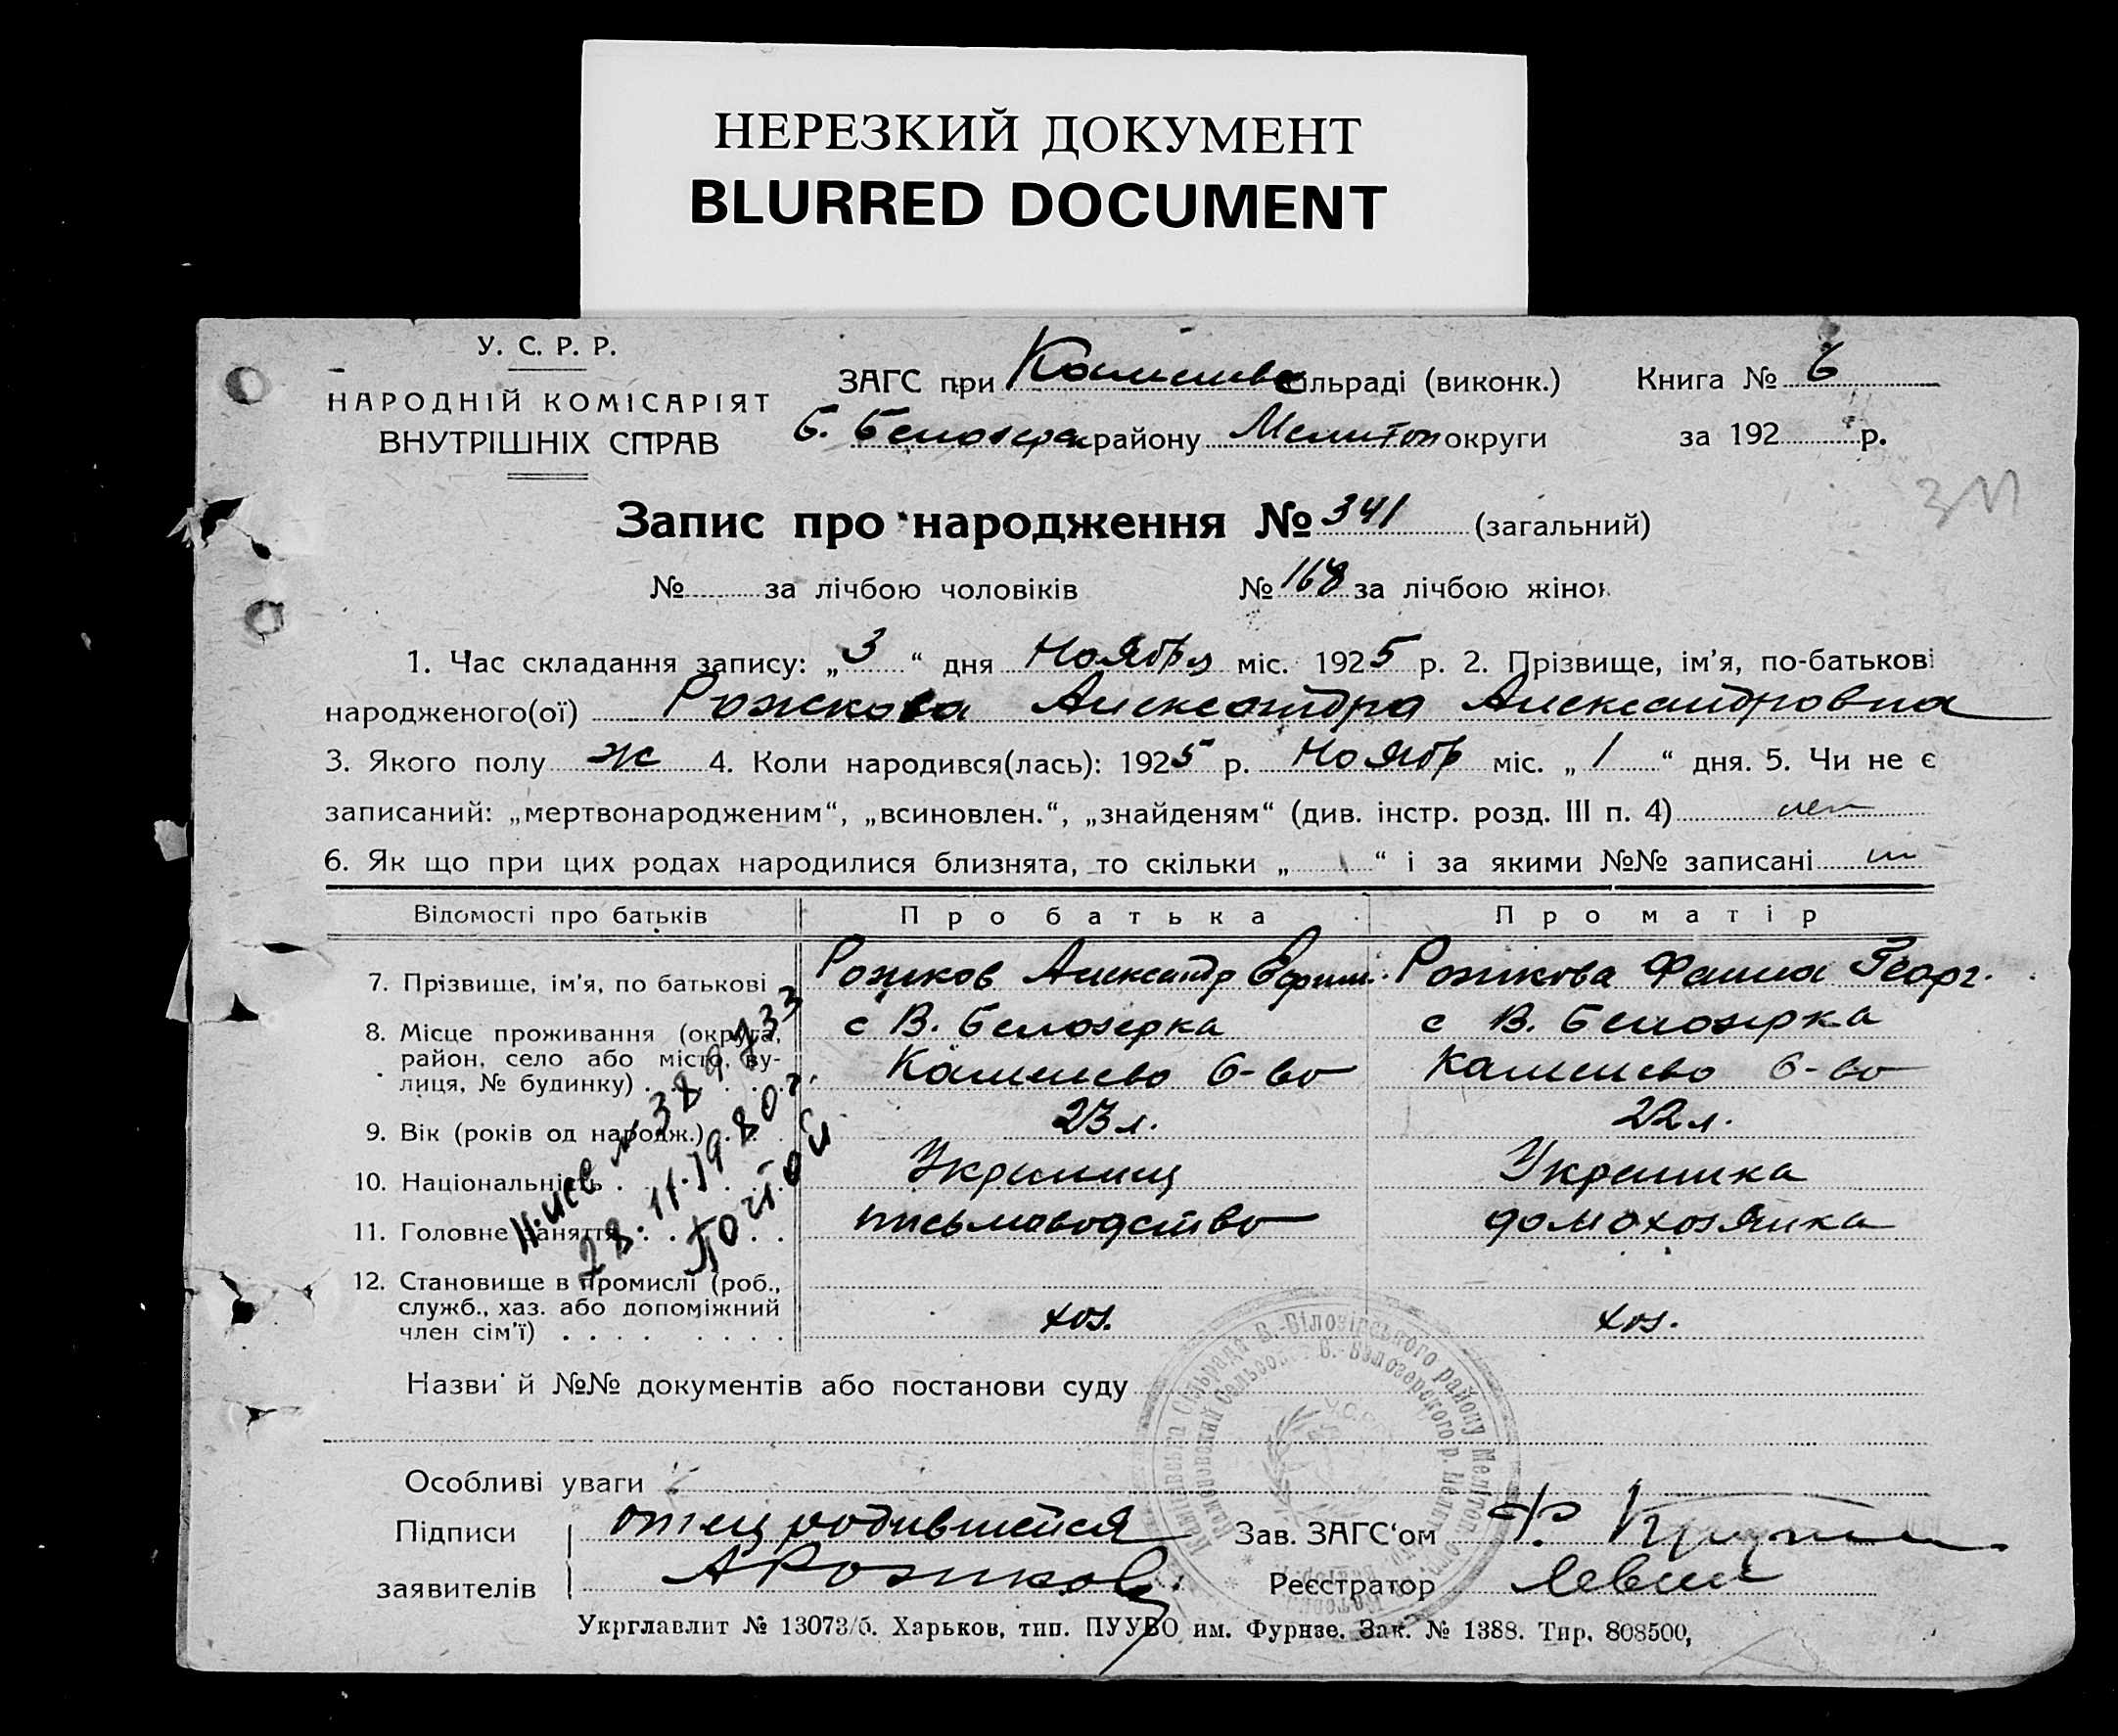 НЕРЕЗКИЙ ДОКУМЕНТ
BLURRED DOCUMENT
У. С. Р. Р.
НАРОДНІЙ КОМІСАРІЯТ
ВНУТРІШНІХ СПРАВ
ЗАГС при льраді (виконк.) Книга № 6
району Мелитоп округи за 192 р.
311
Запис про народження № 341 (загальний)
№ за лічбою чоловіків № 168 за лічбою жінок
1. Час складання запису: „3“ дня Ноября міс. 1925 р. 2. Прізвище, ім'я, по-батькові
народженого(ої) Рожкова Александра Александровна
3. Якого полу ж 4. Коли народився(лась): 1925 р. Ноябр міс. „1“ дня. 5. Чи не є
записаний: „мертвонародженим“, „всиновлен.“, „знайденям“ (див. інстр. розд. III п. 4) нет
6. Як що при цих родах народилися близнята, то скільки „ “ і за якими №№ записані
Відомості про батьків Про батька Про матір
7. Прізвище, ім'я, по батькові Рожков Александр Ефим. Рожкова Фаина Георг.
8. Місце проживання (округа, с В. Белозерка с В. Белозерка
район, село або місто, ву-
лиця, № будинку) . . . . . 6-во 6-во
9. Вік (років од народж.) . . . 23 л. 22 л.
10. Національність . . . . Украинец Украинка
11. Головне заняття . . . . письмоводство домохозяйка
12. Становище в промислі (роб.,
служб., хаз. або допоміжний
член сім'ї) . . . . . . . . хоз. хоз.
28.11.1980г.
Назви й №№ документів або постанови суду
Особливі уваги
Підписи отец родившейся Зав. ЗАГС'ом
заявителів АРожков Реєстратор
Укрглавлит № 13073/б. Харьков, тип. ПУУВО им. Фрунзе. Зак. № 1388. Тир. 808500,